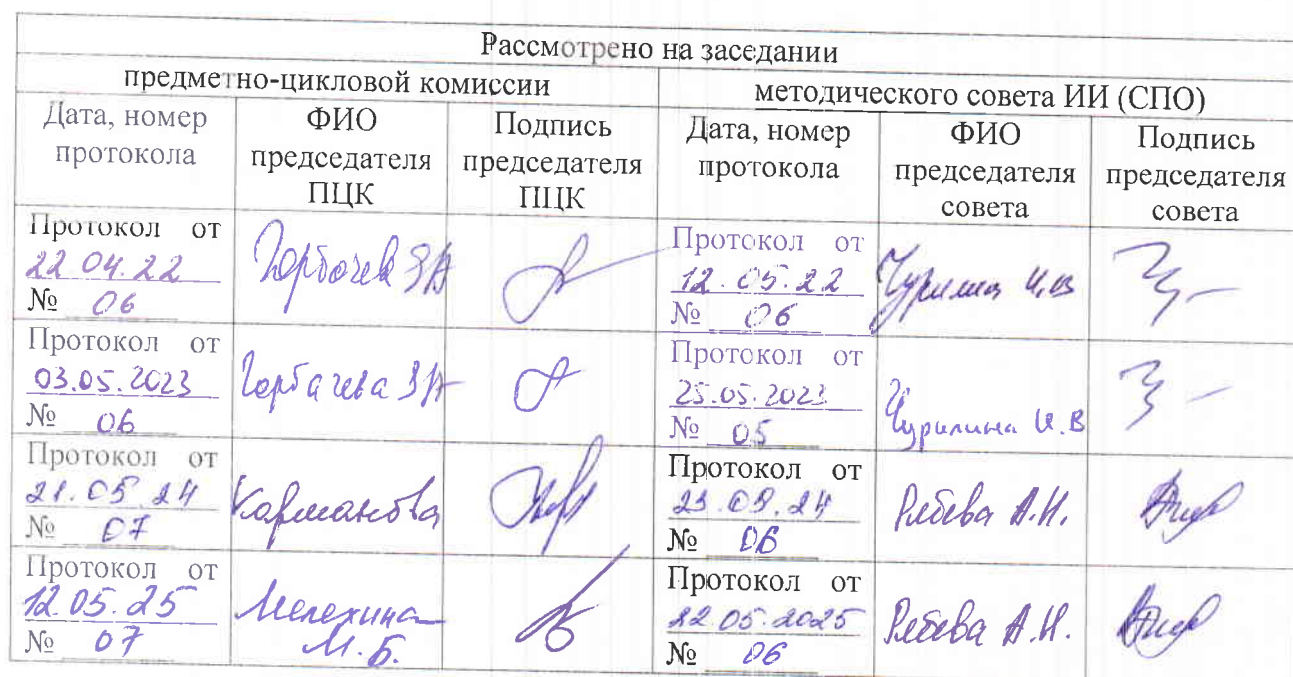 Рассмотрено на заседании
предметно-цикловой комиссии
методического совета ИИ (СПО)
Дата, номер протокола
ФИО председателя ПЦК
Подпись председателя ПЦК
Дата, номер протокола
ФИО председателя совета
Подпись председателя совета
Протокол от
22 04. 22
№ 06
Горбачев ЗА
Протокол от
12. 05. 22
№ 06
Чурилина И.В
Протокол от
03.05.2023
№ 06
Горбачева ЗА
Протокол от
25.05.2023
№ 05
Чурилина И.В
Протокол от
21.05.24
№ 07
Карманова
Протокол от
№ 06
А.Н.
Протокол от
12.05.25
№ 07
Мелехина
М.Б.
Протокол от
22 05.2025
№ 06
А.Н.